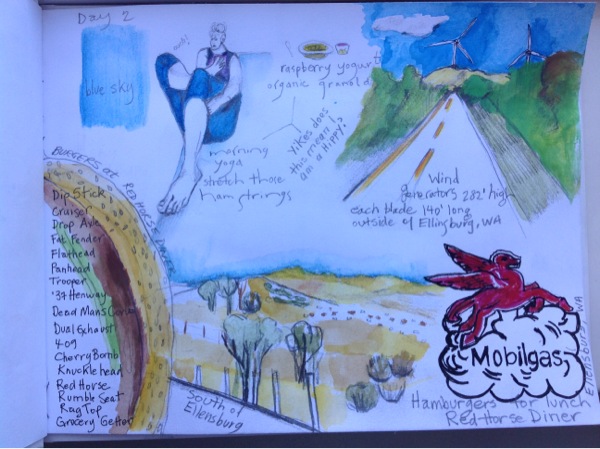 Day 2
blue sky
ouch!
raspberry yogurt
organic granola
Yikes does
this mean I
am a Hippy?
morning
yoga
stretch those
hamstrings
Wind
generators 282' high
each blade 140' long
outside of Ellinsburg, WA
BURGERS AT RED HORSE DINER
Dip Stick
Cruiser
Drop Axle
Fat Fender
Flathead
Panhead
Trooper
'37 Henway
Dead Mans Curve
Dual Exhaust
409
Cherry Bomb
Knucklehead
Red Horse
Rumble Seat
Rag Top
Grocery Getter
South of
Ellensburg
Mobilgas
Ellensburg, WA
Hamburgers for lunch
Red Horse Diner